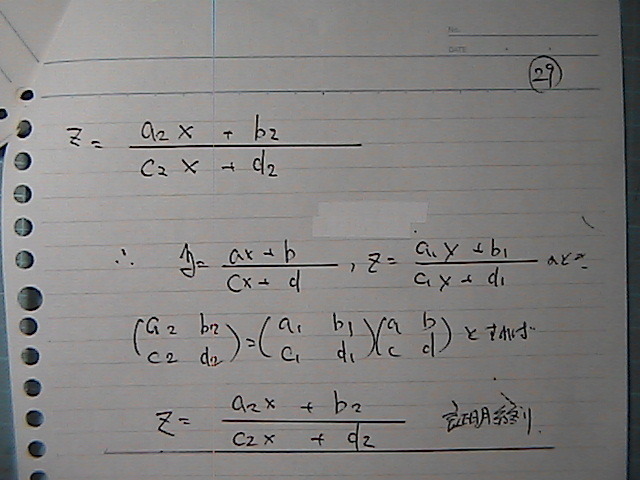 NO.
DATE
29
z = (a2 x + b2) / (c2 x + d2)
∴ y = (ax + b) / (cx + d) , z = (a1 y + b1) / (c1 y + d1) のとき
(a2 b2; c2 d2) = (a1 b1; c1 d1)(a b; c d) とすれば
z = (a2x + b2) / (c2x + d2) 証明終り.